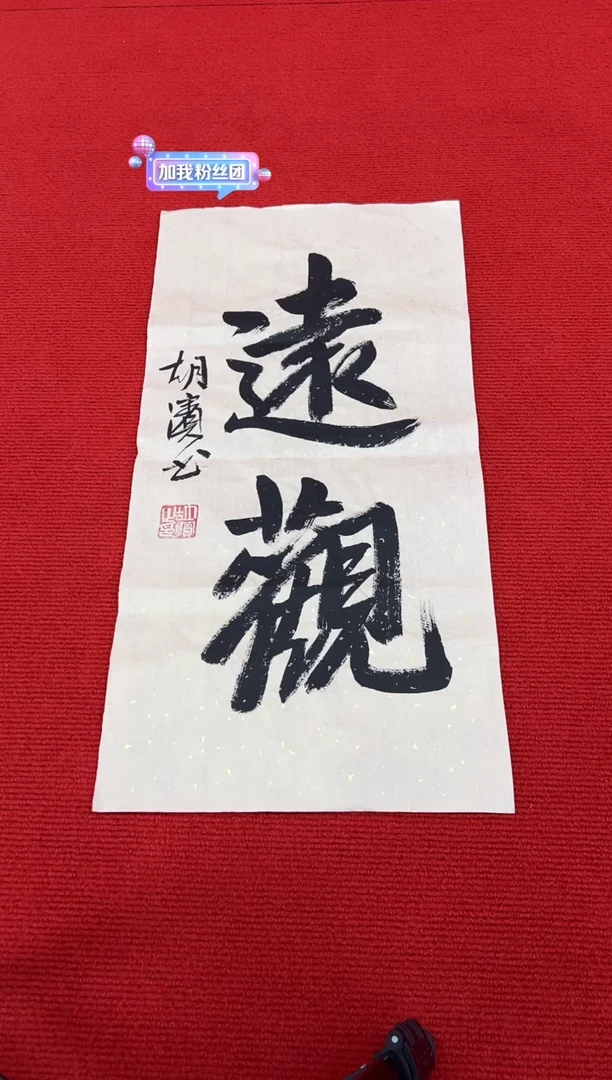 加我粉丝团
遠觀
胡濱书